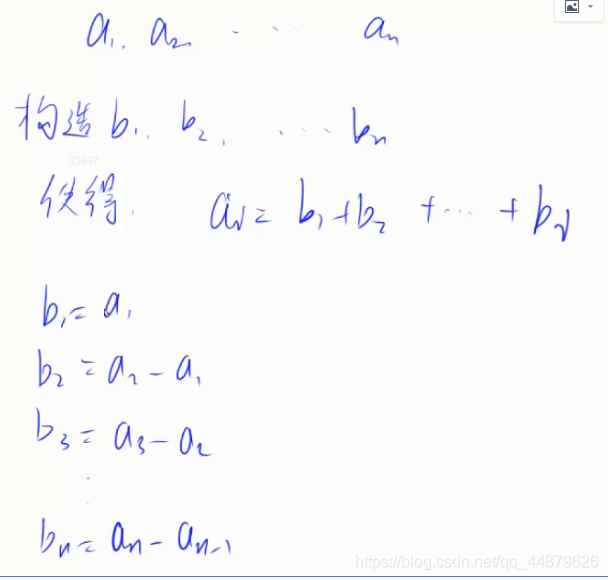 a₁, a₂ ... aₙ
构造 b₁, b₂, ... bₙ
33497
使得. aᵢ = b₁ + b₂ + ... + bᵢ
b₁ = a₁
b₂ = a₂ - a₁
b₃ = a₃ - a₂
⋮
bₙ = aₙ - aₙ₋₁
https://blog.csdn.net/qq_44879626